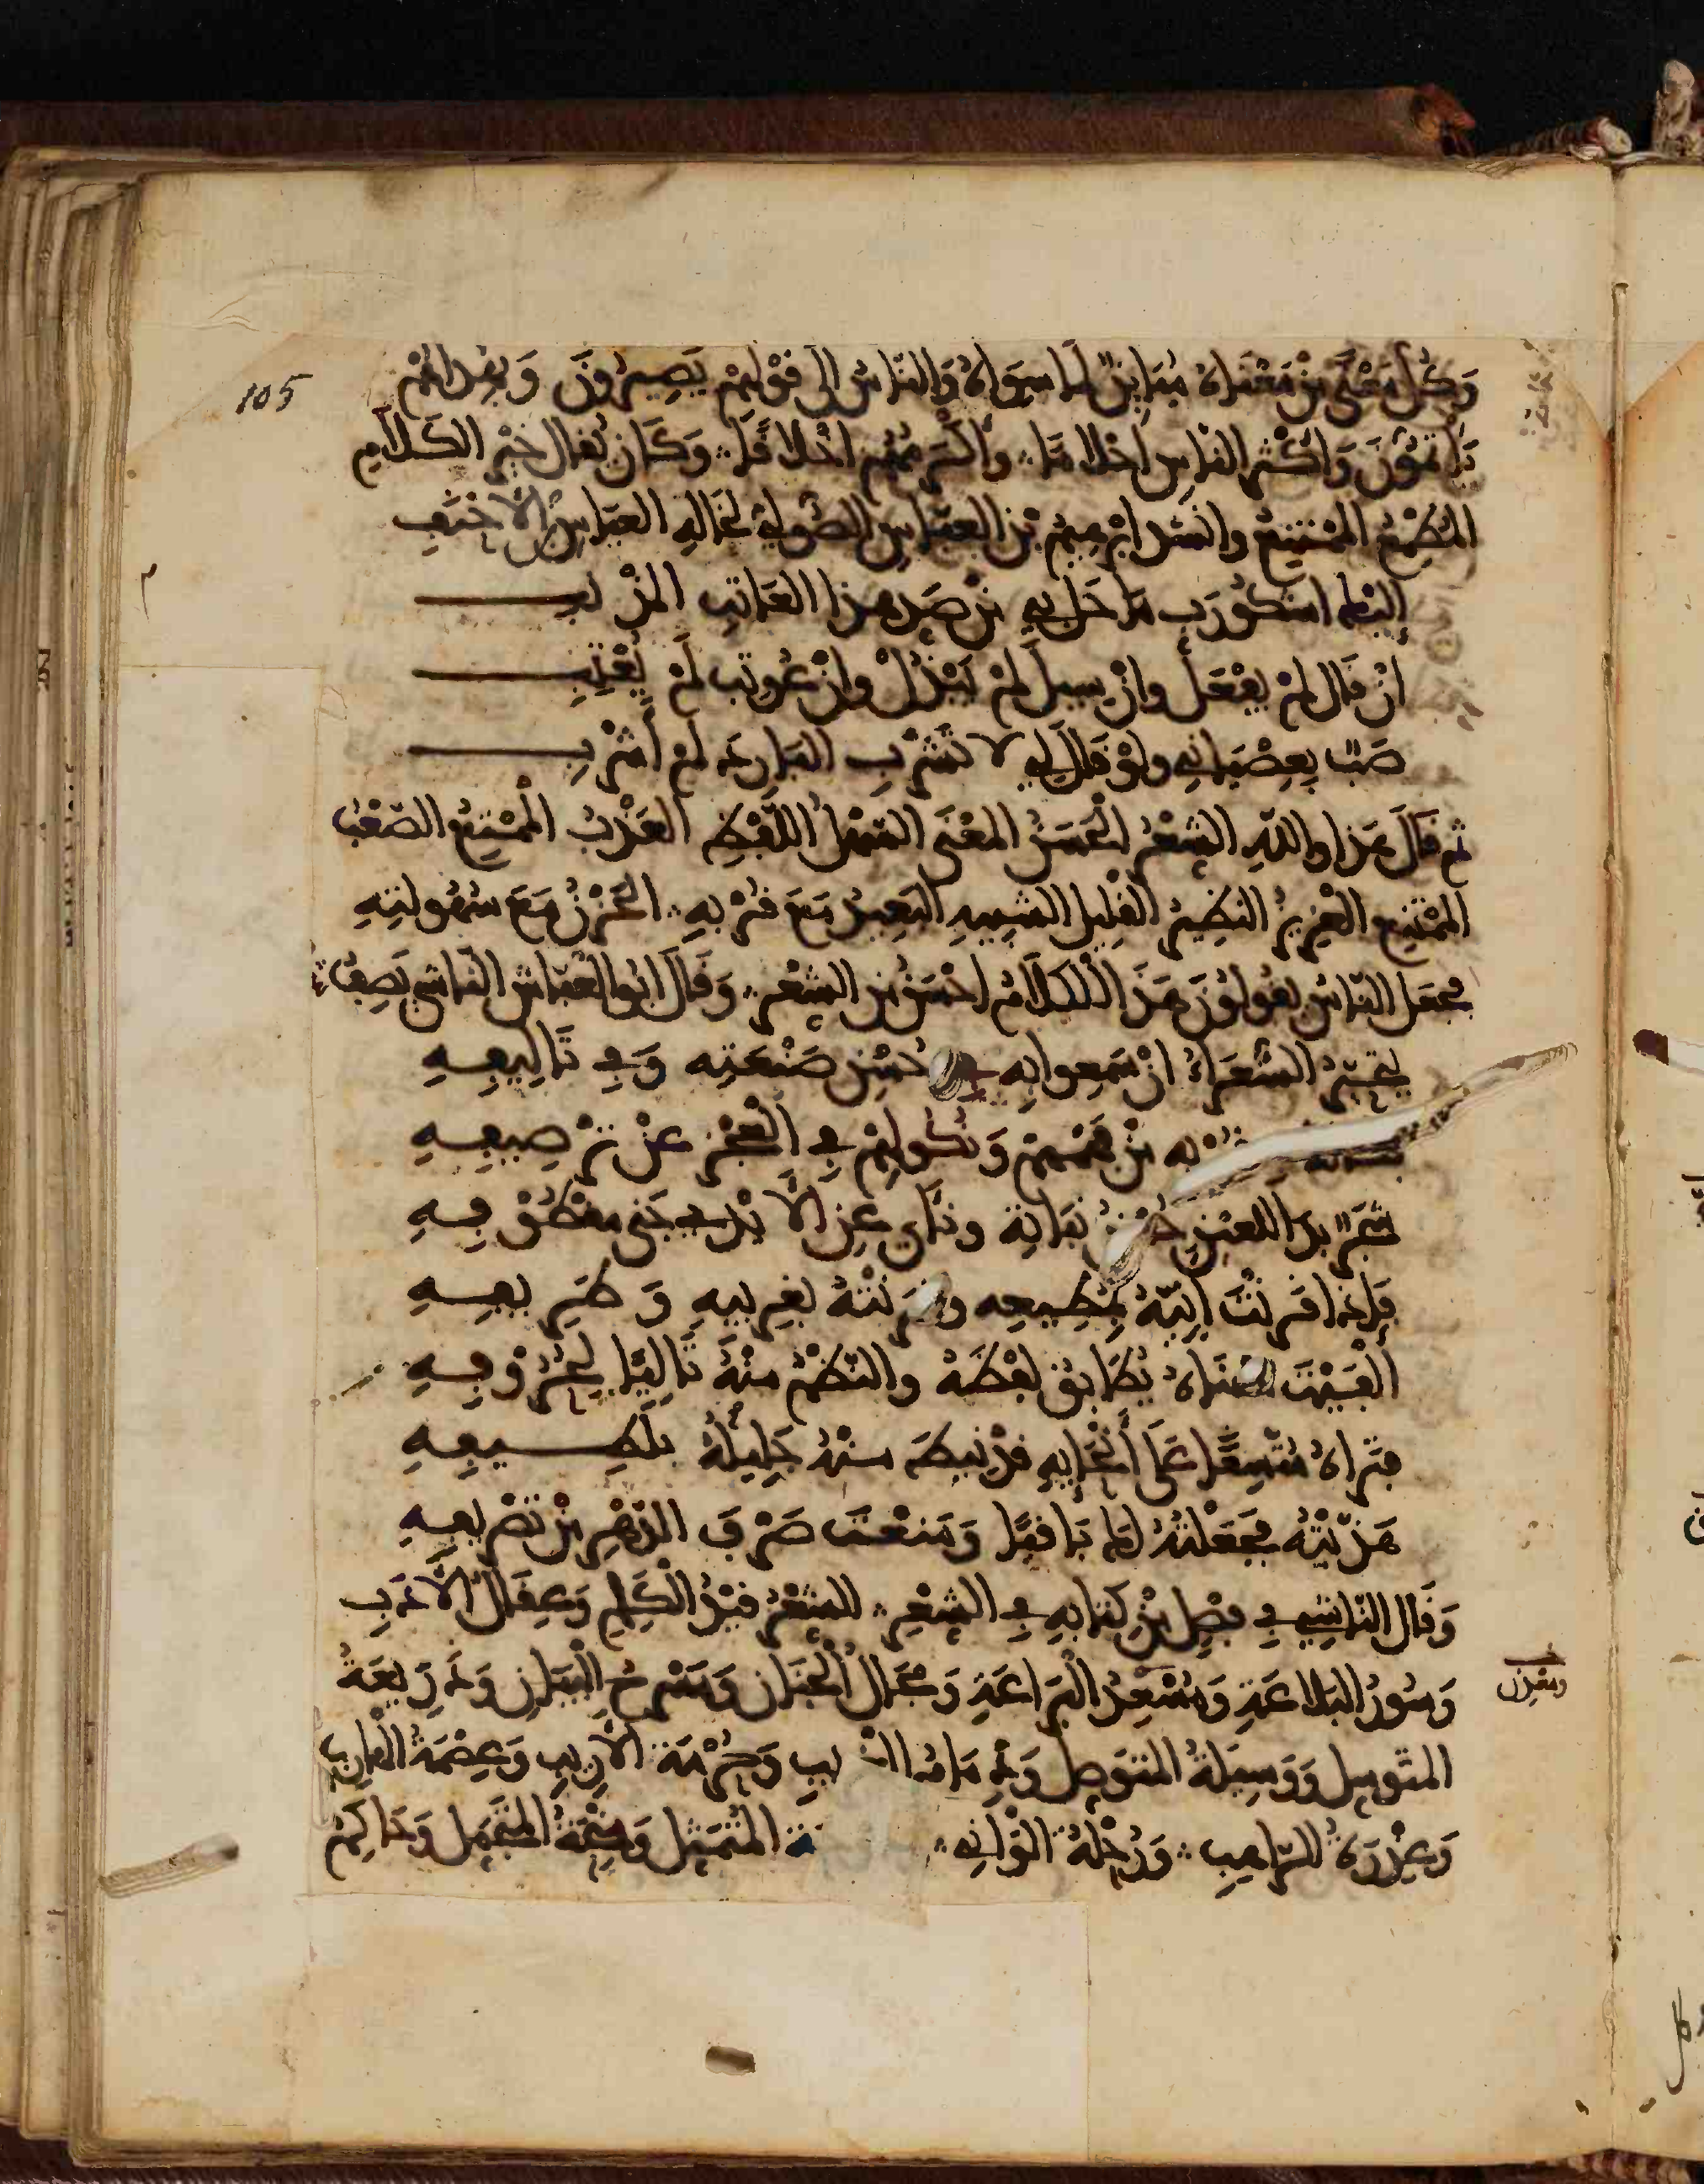 105
وَكُلُّ مَعْنًى مِنْ مَعْنَاهُ مُبَايِنٌ لِمَا سِوَاهُ وَالنّاسُ إلى قَوْلِهِمْ يَصِيرُونَ وَبِفِعْلِهِمْ
يَأْتَمُّونَ وَأكْثَرُ النَّاسِ أحْلامًا وأكْرَمُهُم أخْلاقًا وَكَانَ يُقَالُ خَيْرُ الكَلامِ
المُطْمِعُ المُمْتَنِعُ وأنشَدَ إبْرَهِيمُ بْنُ العَبّاسِ الصُّولِيّ لِخَالِهِ العَبّاسِ بنِ الأحْنَفِ
إلَيْكَ أشْكُو رَبِّ مَا حَلَّ بِي مِنْ صَدِّ هَذَا العَاتِبِ المُذْنِبِ
إنْ قَالَ لَمْ يَفْعَلْ وإنْ سِيلَ لَمْ يَبْذُلْ وإنْ عُوتِبَ لَمْ يُعْتِبِ
صَبٌّ بِعِصْيَانِي ولَوْ قَالَ لِي لا تَشْرَبِ البَارِدَ لَمْ أشْرَبِ
ثم قَالَ هَذَا واللّهِ الشِّعْرُ الْحَسَنُ المَعْنَى السَّهْلُ اللَّفْظِ العَذْبُ الْمُسْتَمَعِ الصَّعْبُ
المُمْتَنِعِ العَزِيزُ النَّظِيرِ القَلِيلُ الشَّبِيهِ البَعِيدُ مَعَ قُرْبِهِ الحَزْنُ مَعَ سُهُولَتِهِ
فَجَعَلَ النّاسُ يَقُولُونَ هَذَا الْكَلاَمُ أحْسَنُ مِنَ الشِّعْرِ وَقَالَ أبُو العَبّاسِ النّاشِي يَصِفُ
يَتَحَيَّرُ الشُّعَرَاءُ إنْ سَمِعُوا بِهِ فِي حُسْنِ صَنْعَتِه وَفِي تَأْلِيفِهِ
بِهِ مِنْ فَهْمِهِمْ وَنُكُولِهِمْ فِي الْعَجْزِ عَنْ تَرْصِيفِهِ
شَجَرٌ بَدَا لِلعَيْنِ حُسْنُ نَبَاتِهِ ونَأَى عَنِ الأَيْدِي جَنَى مَقْطُوفِهِ
فَإذَا قَرَنْتَ أبِيَّهُ بِمُطِيعِه وقَرَنْتَهُ بِغَرِيبِهِ وَطَرِيفِهِ
ألْفَيْتَ مَعْنَاهُ يُطَابِقُ لَفْظَهُ والنَّظْمُ مِنْهُ تَالِيًا لِحُرُوفِهِ
فتَرَاهُ مُتَّسِقًا عَلَى أنْحَايِهِ قد نِيطَ مِنْهُ جَلِيلُهُ بِلَطِيفِهِ
هَذَّبْتُهُ فَجَعَلْتُهُ لَكَ بَاقِيًا وَمَنَعْتُ صَرْفَ الدَّهْرِ مِنْ تَصْرِيفِهِ
وَقَالَ النّاشِي فِي فَصْلٍ مِنْ كِتَابِهِ فِي الشِّعْرِ الشِّعْرُ قَيْدُ الْكَلِمِ وَعِقَالُ الأَدَبِ
وَسُورُ البَلاغَةِ وَمُسْعِدُ البَرَاعَةِ وَمَجَالُ الْجَنَانِ وَمَسْرَحُ الْبَيَانِ وَذَرِيعَةُ
ومَعْدِن
المُتَوَسِّلِ وَوَسِيلَةُ المُتَوَصِّلِ وَذِمَامُ الْغَرِيبِ وَحُرْمَةُ الأدِيبِ وَعِصْمَةُ الْهَارِبِ
وَعُذْرَةُ الرَّاهِبِ وَرُحْلَةُ الدَّانِي المُتَمَثِّلِ وَمِنْحَةُ المُتَجَمِّلِ وَحَاكِمُ